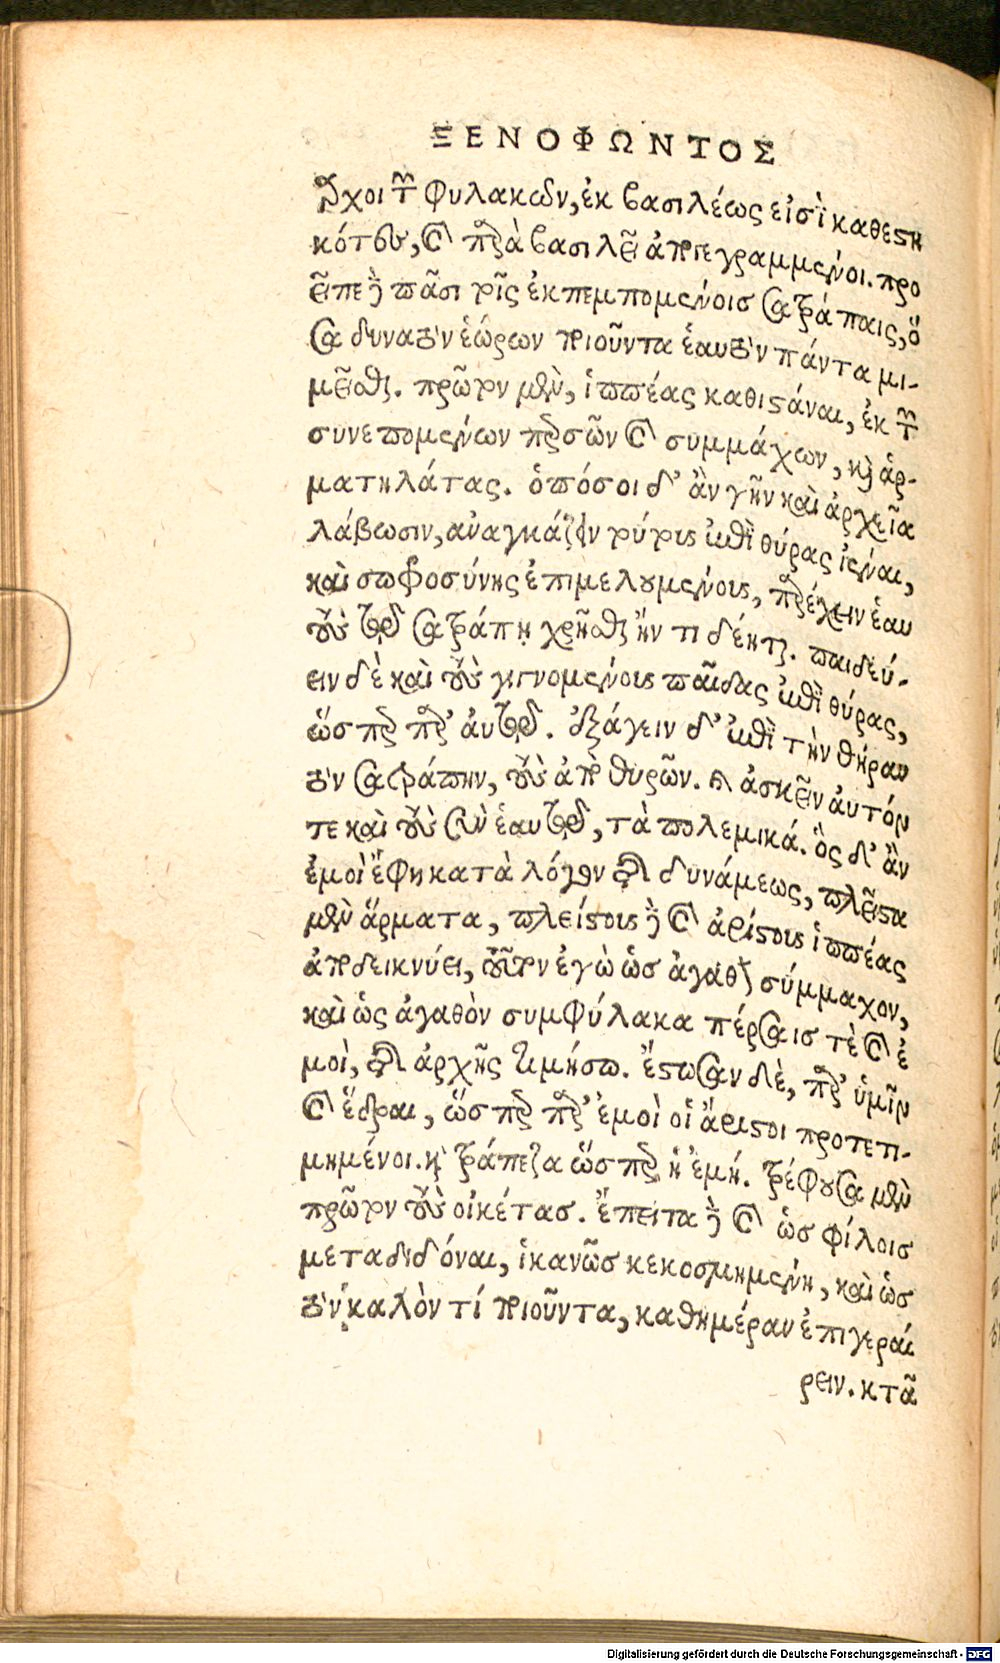 ΞΕΝΟΦΩΝΤΟΣ
αρχοι τῶν φυλακῶν, ἐκ βασιλέως εἰσὶ καθεστη
κότες, καὶ παρὰ βασιλεῖ ἀπογεγραμμένοι. προ
εῖπε δὲ πᾶσι τοῖς ἐκπεμπομένοις σατράπαις, ὅ
σα δυνατὸν ἑώρων ποιοῦντα ἑαυτὸν πάντα μι-
μεῖσθαι. πρῶτον μὲν, ἱππέας καθιστάναι, ἐκ τῶν
συνεπομένων περσῶν καὶ συμμάχων, καὶ ἁρ-
ματηλάτας. ὁπόσοι δ' ἂν γῆν καὶ ἀρχεῖα
λάβωσιν, ἀναγκάζειν τούτους ἐπὶ θύρας ἰέναι,
καὶ σωφροσύνης ἐπιμελουμένους, παρέχειν ἑαυ
τοὺς τῷ σατράπῃ χρῆσθαι ἤν τι δέηται. παιδεύ-
ειν δὲ καὶ τοὺς γιγνομένους παῖδας ἐπὶ θύρας,
ὥσπερ παρ' αὐτῷ. ἐξάγειν δ' ἐπὶ τὴν θήραν
τὸν σατράπην, τοὺς ἀπὸ θυρῶν. καὶ ἀσκεῖν αὐτόν
τε καὶ τοὺς σὺν ἑαυτῷ, τὰ πολεμικά. ὃς δ' ἂν
ἐμοὶ ἔφη κατὰ λόγον τῆς δυνάμεως, πλεῖστα
μὲν ἅρματα, πλείστους δὲ καὶ ἀρίστους ἱππέας
ἀποδεικνύει, τοῦτον ἐγὼ ὡς ἀγαθὸν σύμμαχον,
καὶ ὡς ἀγαθὸν συμφύλακα πέρσαις τὲ καὶ ἐ
μοὶ, τῆς ἀρχῆς τιμήσω. ἔστωσαν δὲ, παρ' ὑμῖν
καὶ ἕδραι, ὥσπερ παρ' ἐμοὶ οἱ ἄριστοι προτετι-
μημένοι. καὶ τράπεζα ὥσπερ ἡ ἐμή. τρέφουσα μὲν
πρῶτον τοὺς οἰκέτας. ἔπειτα δὲ καὶ ὡς φίλοις
μεταδιδόναι, ἱκανῶς κεκοσμημένη, καὶ ὡς
τὸν καλὸν τί ποιοῦντα, καθημέραν ἐπιγεραί
ρειν. κτᾶ
Digitalisierung gefördert durch die Deutsche Forschungsgemeinschaft - DFG